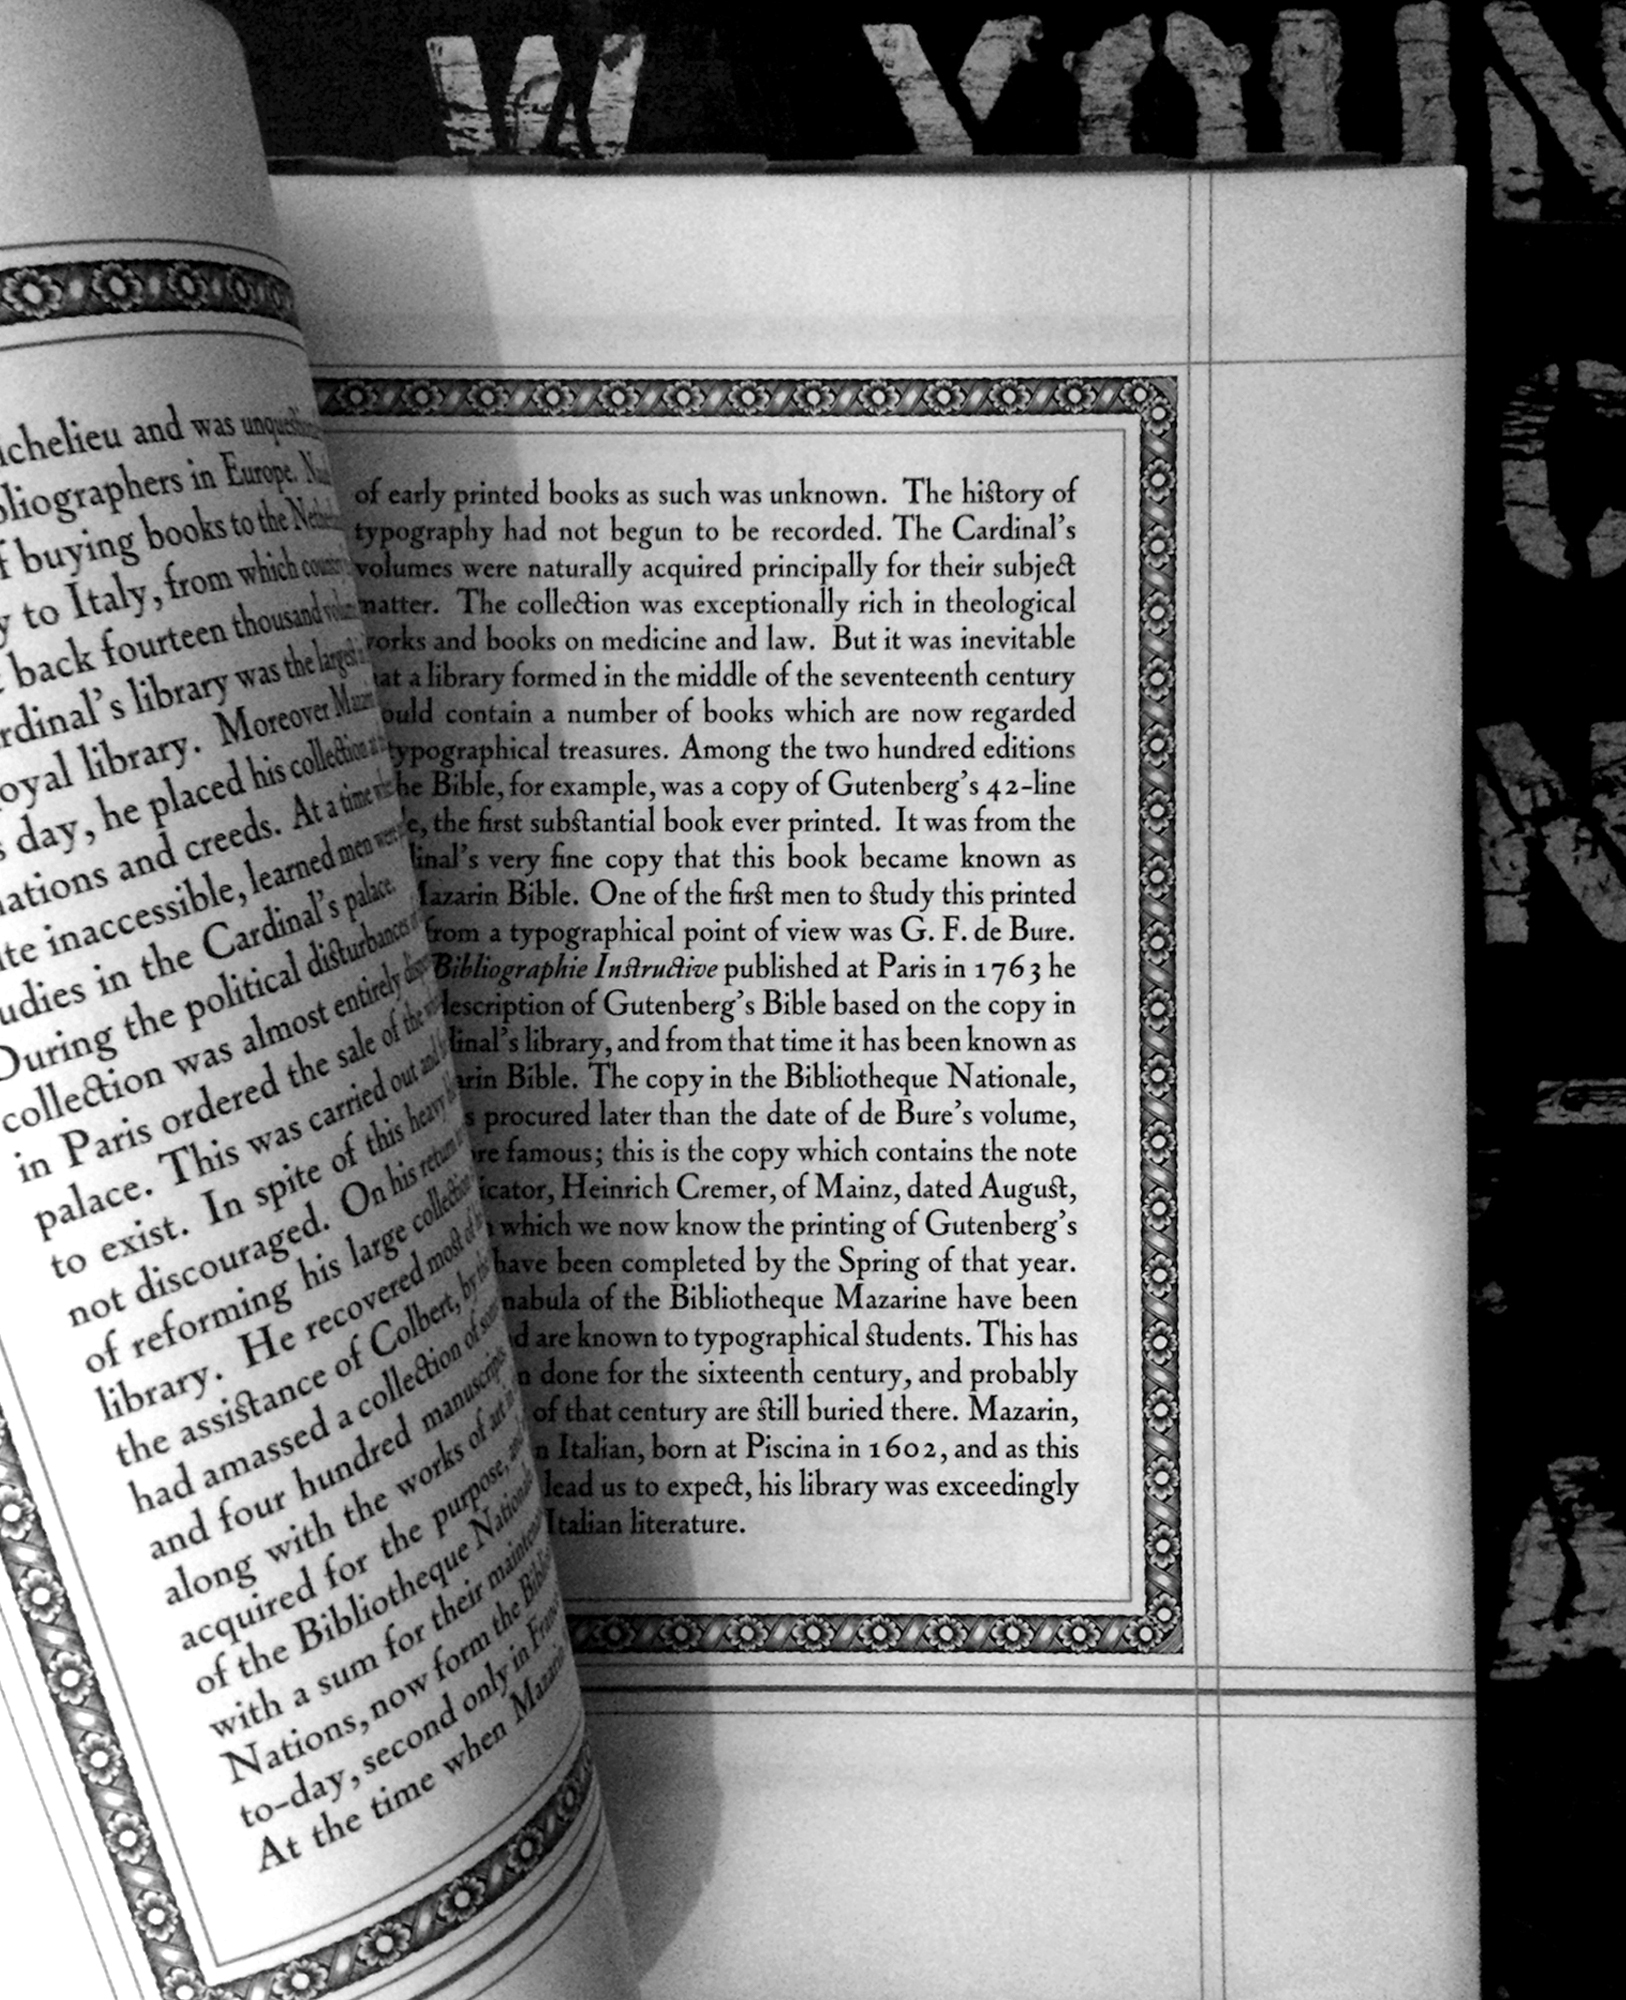 W YOUN
and was
in Europe.
buying books to the
to Italy, from which
back fourteen thousand
library was the largest
library. Moreover
day, he placed his collection
and creeds. At a time
inaccessible, learned men were
in the Cardinal's palace.
During the political disturbances
collection was almost entirely
in Paris ordered the sale of the
palace. This was carried out and
to exist. In spite of this heavy
not discouraged. On his return
of reforming his large collection
library. He recovered most of
the assistance of Colbert, by
had amassed a collection of
and four hundred manuscripts
along with the works of art in
acquired for the purpose,
of the Bibliotheque Nationale
with a sum for their
Nations, now form the
to-day, second only in
At the time when Mazarin
of early printed books as such was unknown. The history of
typography had not begun to be recorded. The Cardinal's
volumes were naturally acquired principally for their subject
matter. The collection was exceptionally rich in theological
and books on medicine and law. But it was inevitable
a library formed in the middle of the seventeenth century
contain a number of books which are now regarded
typographical treasures. Among the two hundred editions
Bible, for example, was a copy of Gutenberg's 42-line
the first substantial book ever printed. It was from the
very fine copy that this book became known as
Mazarin Bible. One of the first men to study this printed
from a typographical point of view was G. F. de Bure.
Bibliographie Instructive published at Paris in 1763 he
description of Gutenberg's Bible based on the copy in
library, and from that time it has been known as
Bible. The copy in the Bibliotheque Nationale,
procured later than the date of de Bure's volume,
famous; this is the copy which contains the note
Heinrich Cremer, of Mainz, dated August,
which we now know the printing of Gutenberg's
have been completed by the Spring of that year.
of the Bibliotheque Mazarine have been
are known to typographical students. This has
done for the sixteenth century, and probably
of that century are still buried there. Mazarin,
Italian, born at Piscina in 1602, and as this
lead us to expect, his library was exceedingly
Italian literature.